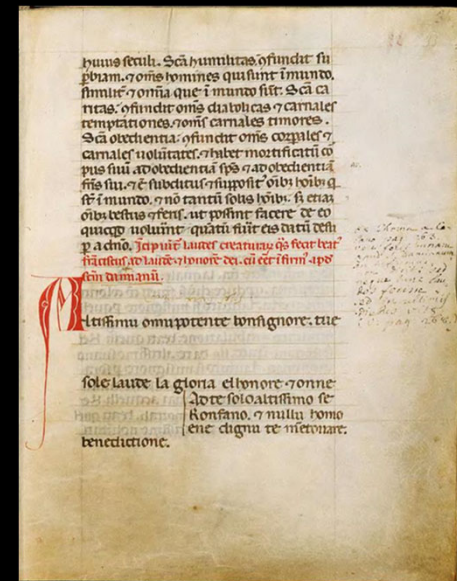 huius seculi. Scā humilitas ꝯfundit su
ꝑbiam. ⁊ om̄s homines qui sunt ī mundo.
similit᷑ ⁊ om̄ia que ī mundo sūt. Scā ca
ritas. ꝯfundit om̄s diabolicas ⁊ carnales
temptationes. ⁊ om̄s carnales timores.
Scā obedientia. ꝯfundit om̄s corꝑales ⁊
carnales uoluntates. ⁊ habet mortificatū co
pus suū ad obedientiā sp̄s ⁊ ad obedientiā
fr̄is sui. ⁊ ē subditus ⁊ supposit᷒ oībꝫ hoībꝫ q̇
st̄ ī mundo. ⁊ nō tantū solis hoībꝫ. sꝫ etiaꝫ
oībꝫ bestiis ⁊ feris. ut possint facere de eo
quicqd uoluerint quātū fuit eis datū desu
ꝑ a dn̄o. Incipiūt laudes creaturaꝝ q̄s fecit beat᷒
frāciscus ad laudē ⁊ honorē dei. cū eēt īfirm᷒ apd
scm̄ damianū.
Altissimu omnipotente bonsignore. tue
sole laude la gloria elhonore ⁊ onne
Ad te solo altissimo se
Konfano. ⁊ nullu homo
ene dignu te mentouare.
benedictione.